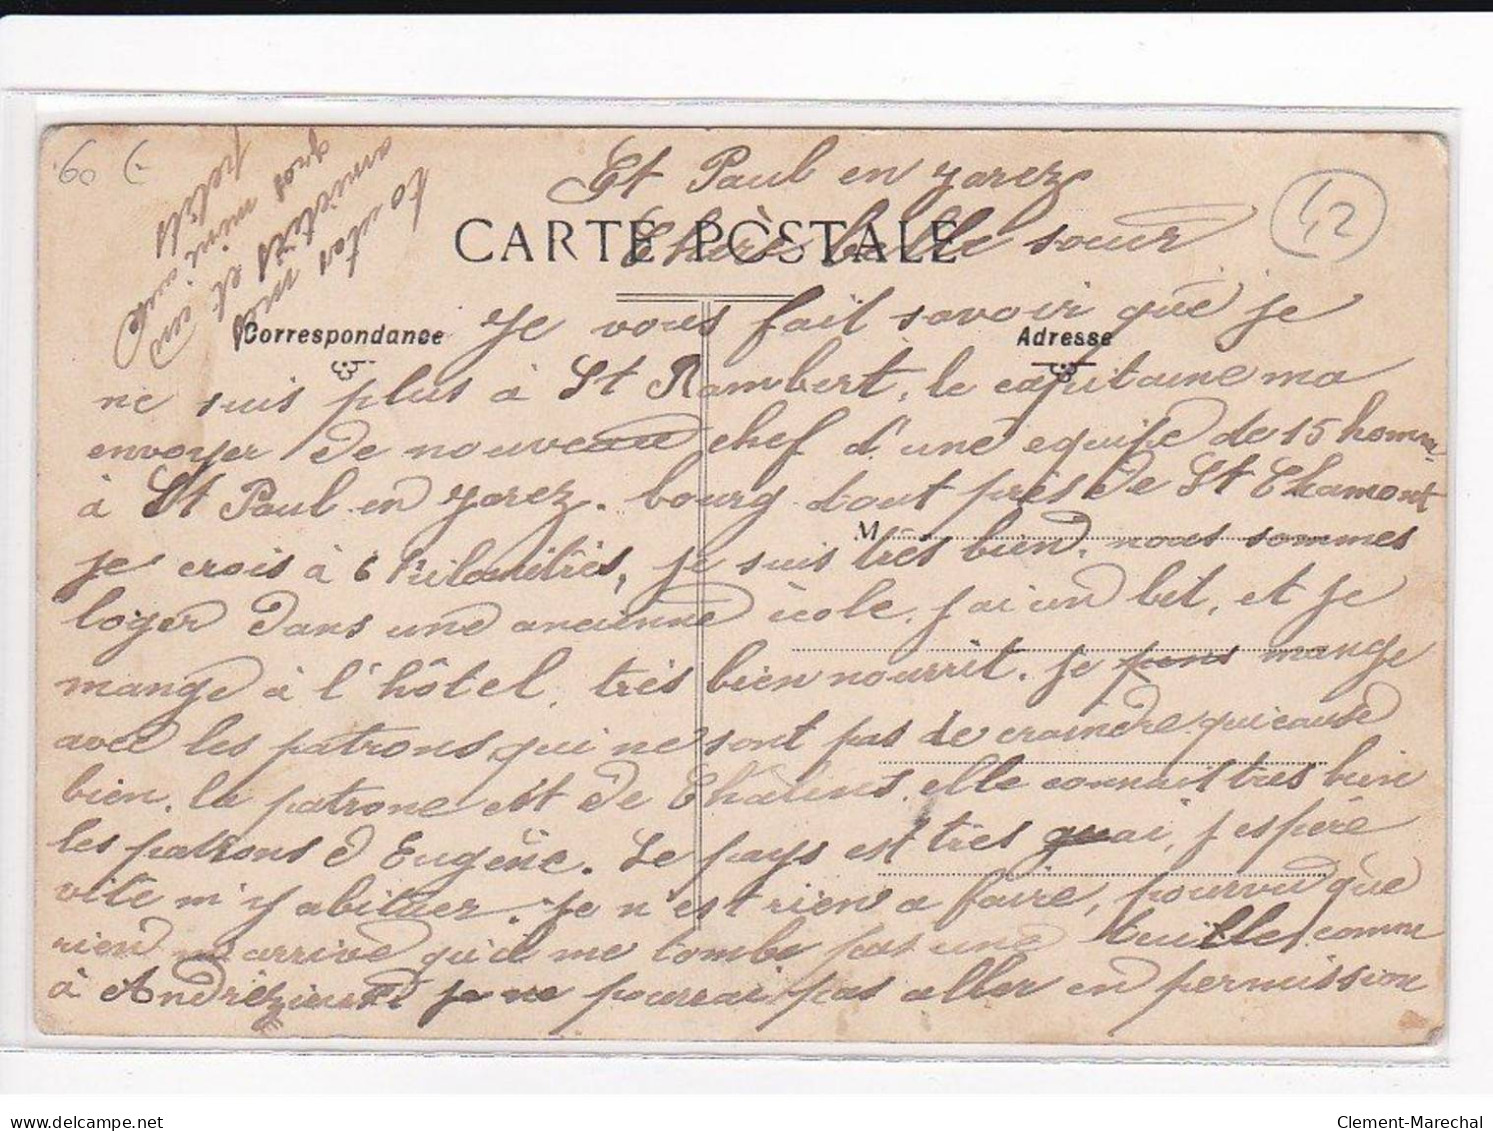 60 €
42
St Paul en yarez
CARTE POSTALE
Chère belle soeur
Correspondance
Adresse
Je vous fait savoir que je
ne suis plus à St Rambert, le capitaine ma
envoyer de nouveau chef d'une equipe de 15 homm
à St Paul en yarez. bourg tout près de St Chamont
M
je crois à 6 kilomètres, je suis très bien, nous sommes
loger dans une ancienne école, j'ai un lit, et je
mange à l'hôtel, très bien nourrit. je mange
avec les patrons qui ne sont pas de craindre qui cause
bien. la patrone est de elle connait très bien
les patrons d Eugène. Le pays est très guai, j espère
vite m'y abituer. Je n'est rien a faire, pourvu que
rien m'arrive qu'il me tombe pas une tuille, comme
à Andrézieux je ne pourrai pas aller en permission
ton
amitiés
et
gros
petits
Clement-Marechal
delcampe.net